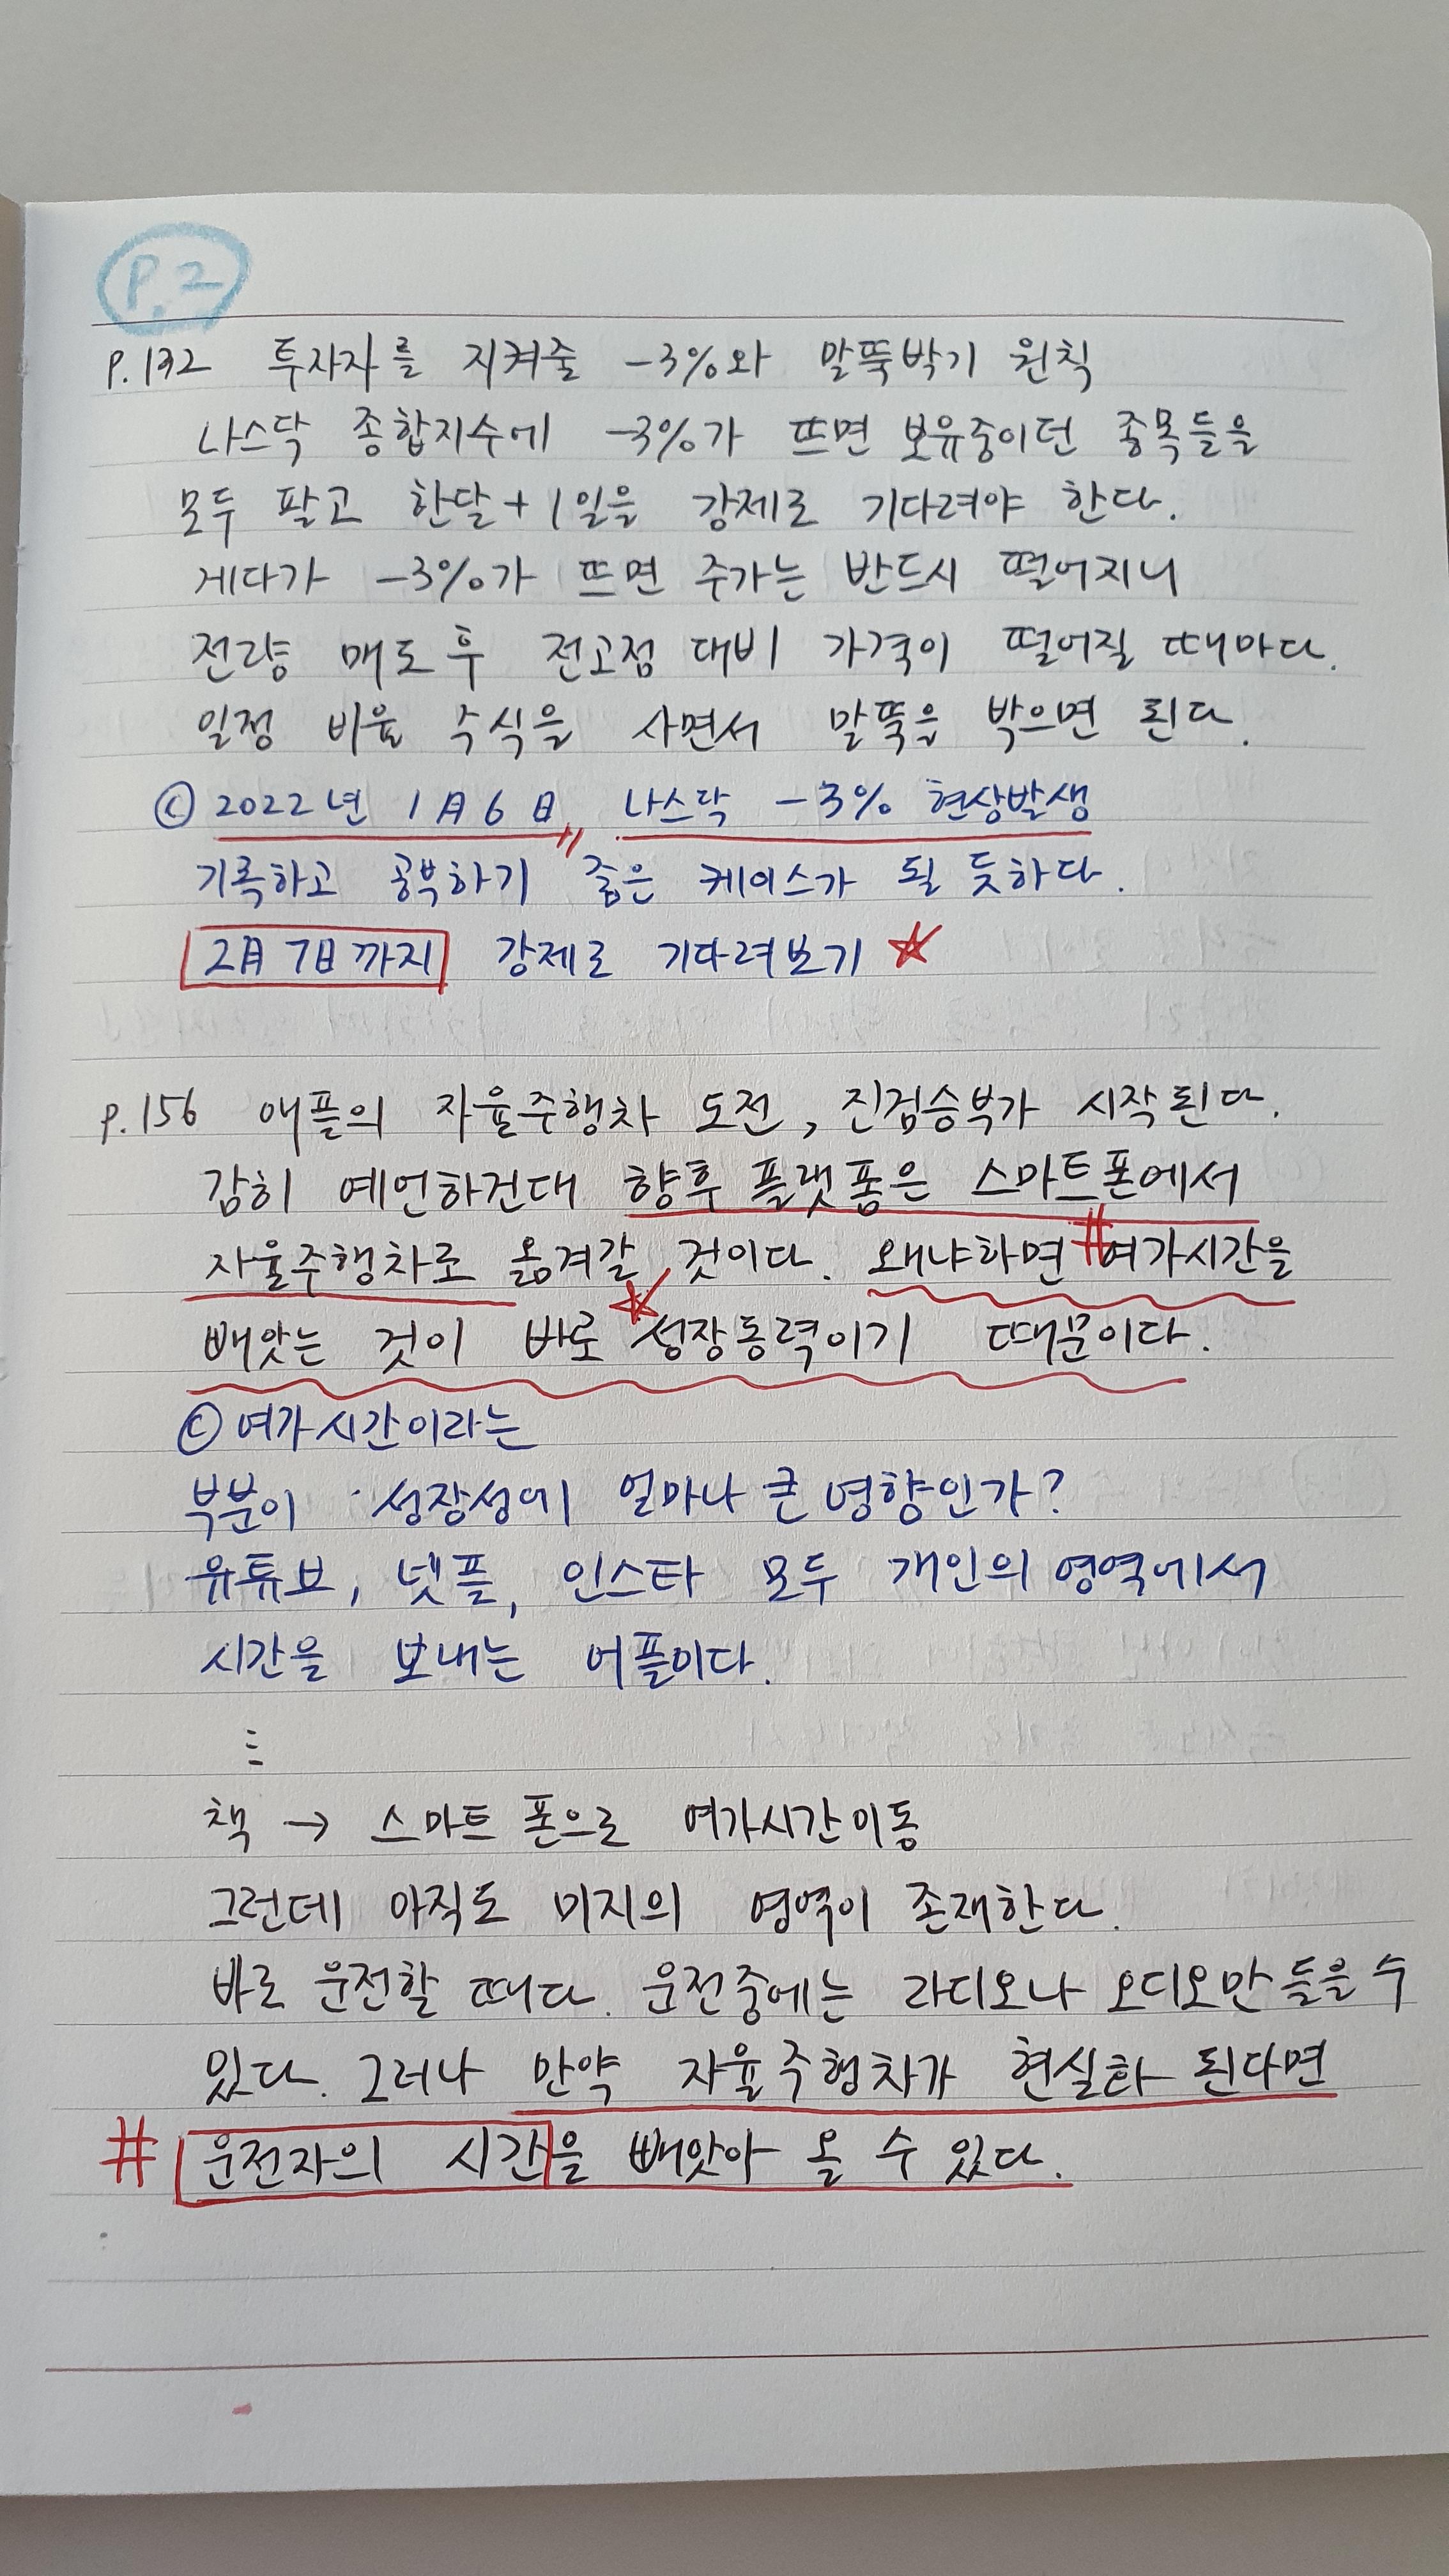 P.2
P.132 투자자를 지켜줄 -3%와 말뚝박기 원칙
나스닥 종합지수에 -3%가 뜨면 보유중이던 종목들을
모두 팔고 한달+1일을 강제로 기다려야 한다.
게다가 -3%가 뜨면 주가는 반드시 떨어지니
전량 매도 후 전고점 대비 가격이 떨어질 때마다.
일정 비율 주식을 사면서 말뚝을 박으면 된다.
ⓒ 2022년 1月 6日, 나스닥 -3% 현상발생
기록하고 공부하기 좋은 케이스가 될 듯하다.
2月 7日까지 강제로 기다려보기 ☆
P.156 애플의 자율주행차 도전, 진검승부가 시작된다.
감히 예언하건대 향후 플랫폼은 스마트폰에서
자율주행차로 옮겨갈 것이다. 왜냐하면 #여가시간을
빼앗는 것이 바로 ☆성장동력이기 때문이다.
ⓒ 여가시간이라는
부분이 성장성에 얼마나 큰 영향인가?
유튜브, 넷플, 인스타 모두 개인의 영역에서
시간을 보내는 어플이다.
⋮
책 → 스마트폰으로 여가시간이동
그런데 아직도 미지의 영역이 존재한다.
바로 운전할 때다. 운전중에는 라디오나 오디오만 들을 수
있다. 그러나 만약 자율주행차가 현실화 된다면
# 운전자의 시간을 빼앗아 올 수 있다.